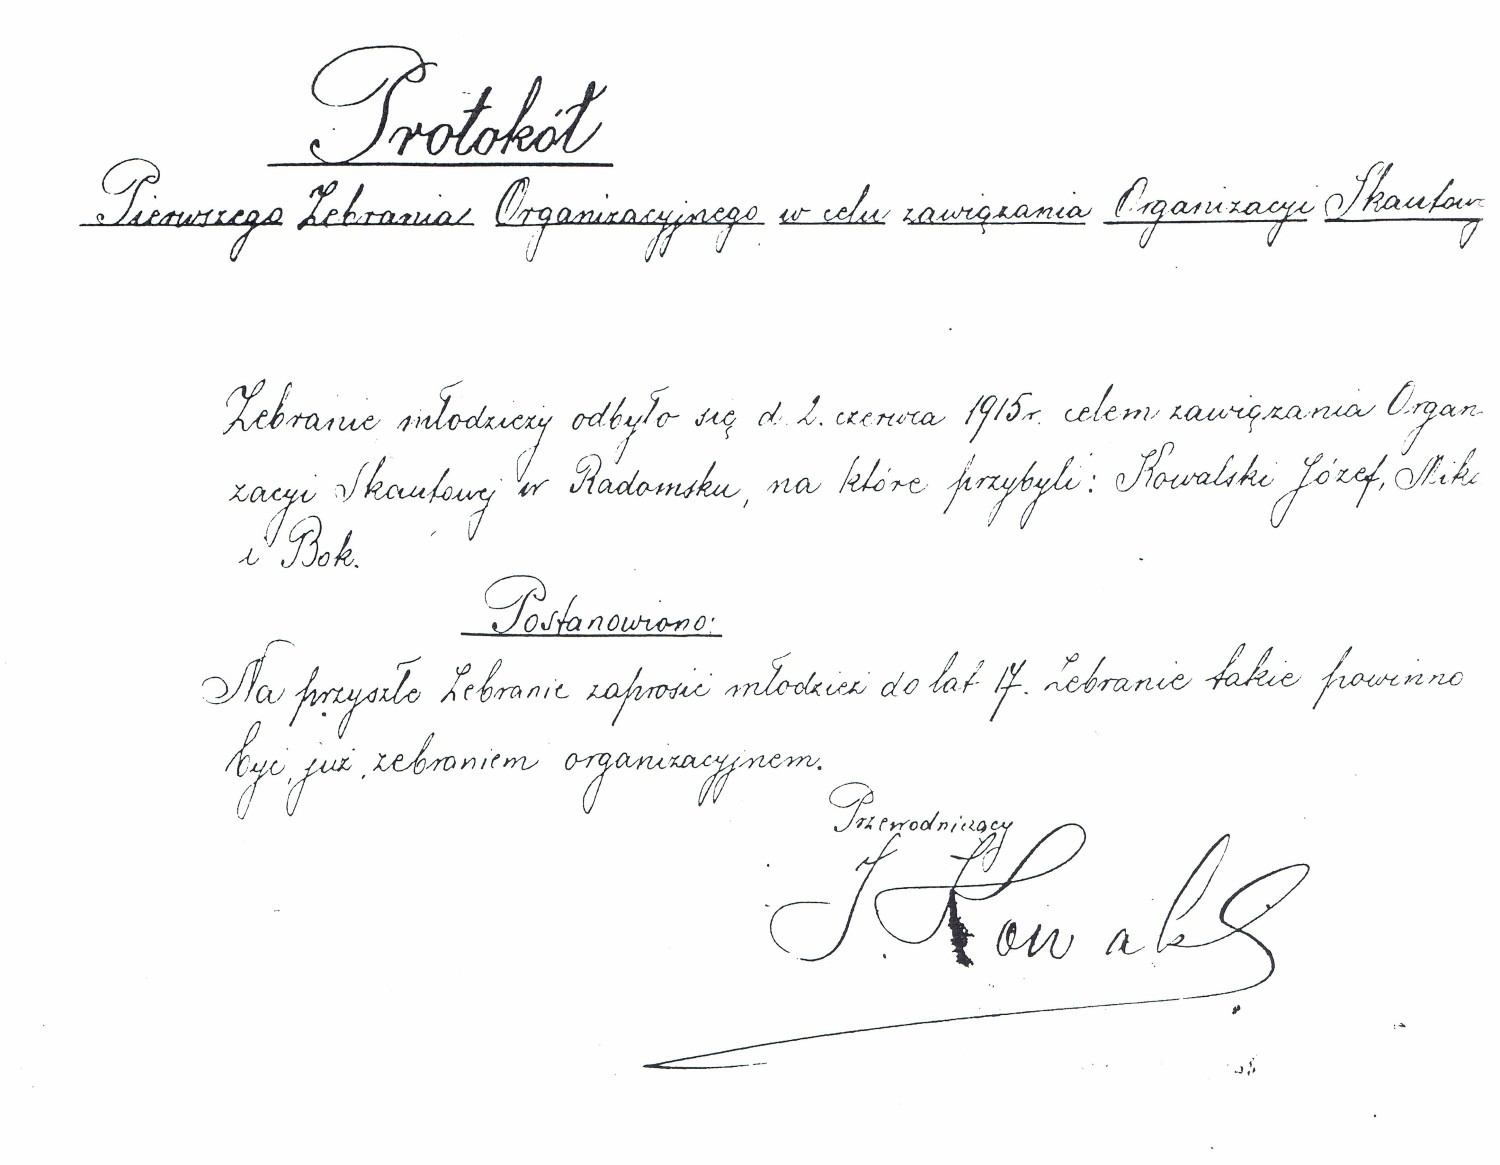 Protokół
Pierwszego Zebrania Organizacyjnego w celu zawiązania Organizacyi Skautow
Zebranie młodzieży odbyło się d. 2. czerwca 1915 r. celem zawiązania Organ-
zacyi Skautowej w Radomsku, na które przybyli: Kowalski Józef, Mik
i Bok.
Postanowiono:
Na przyszłe Zebranie zaprosić młodzież do lat 17. Zebranie takie powinno
być już zebraniem organizacyjnem.
Przewodniczący
J. Kowalski